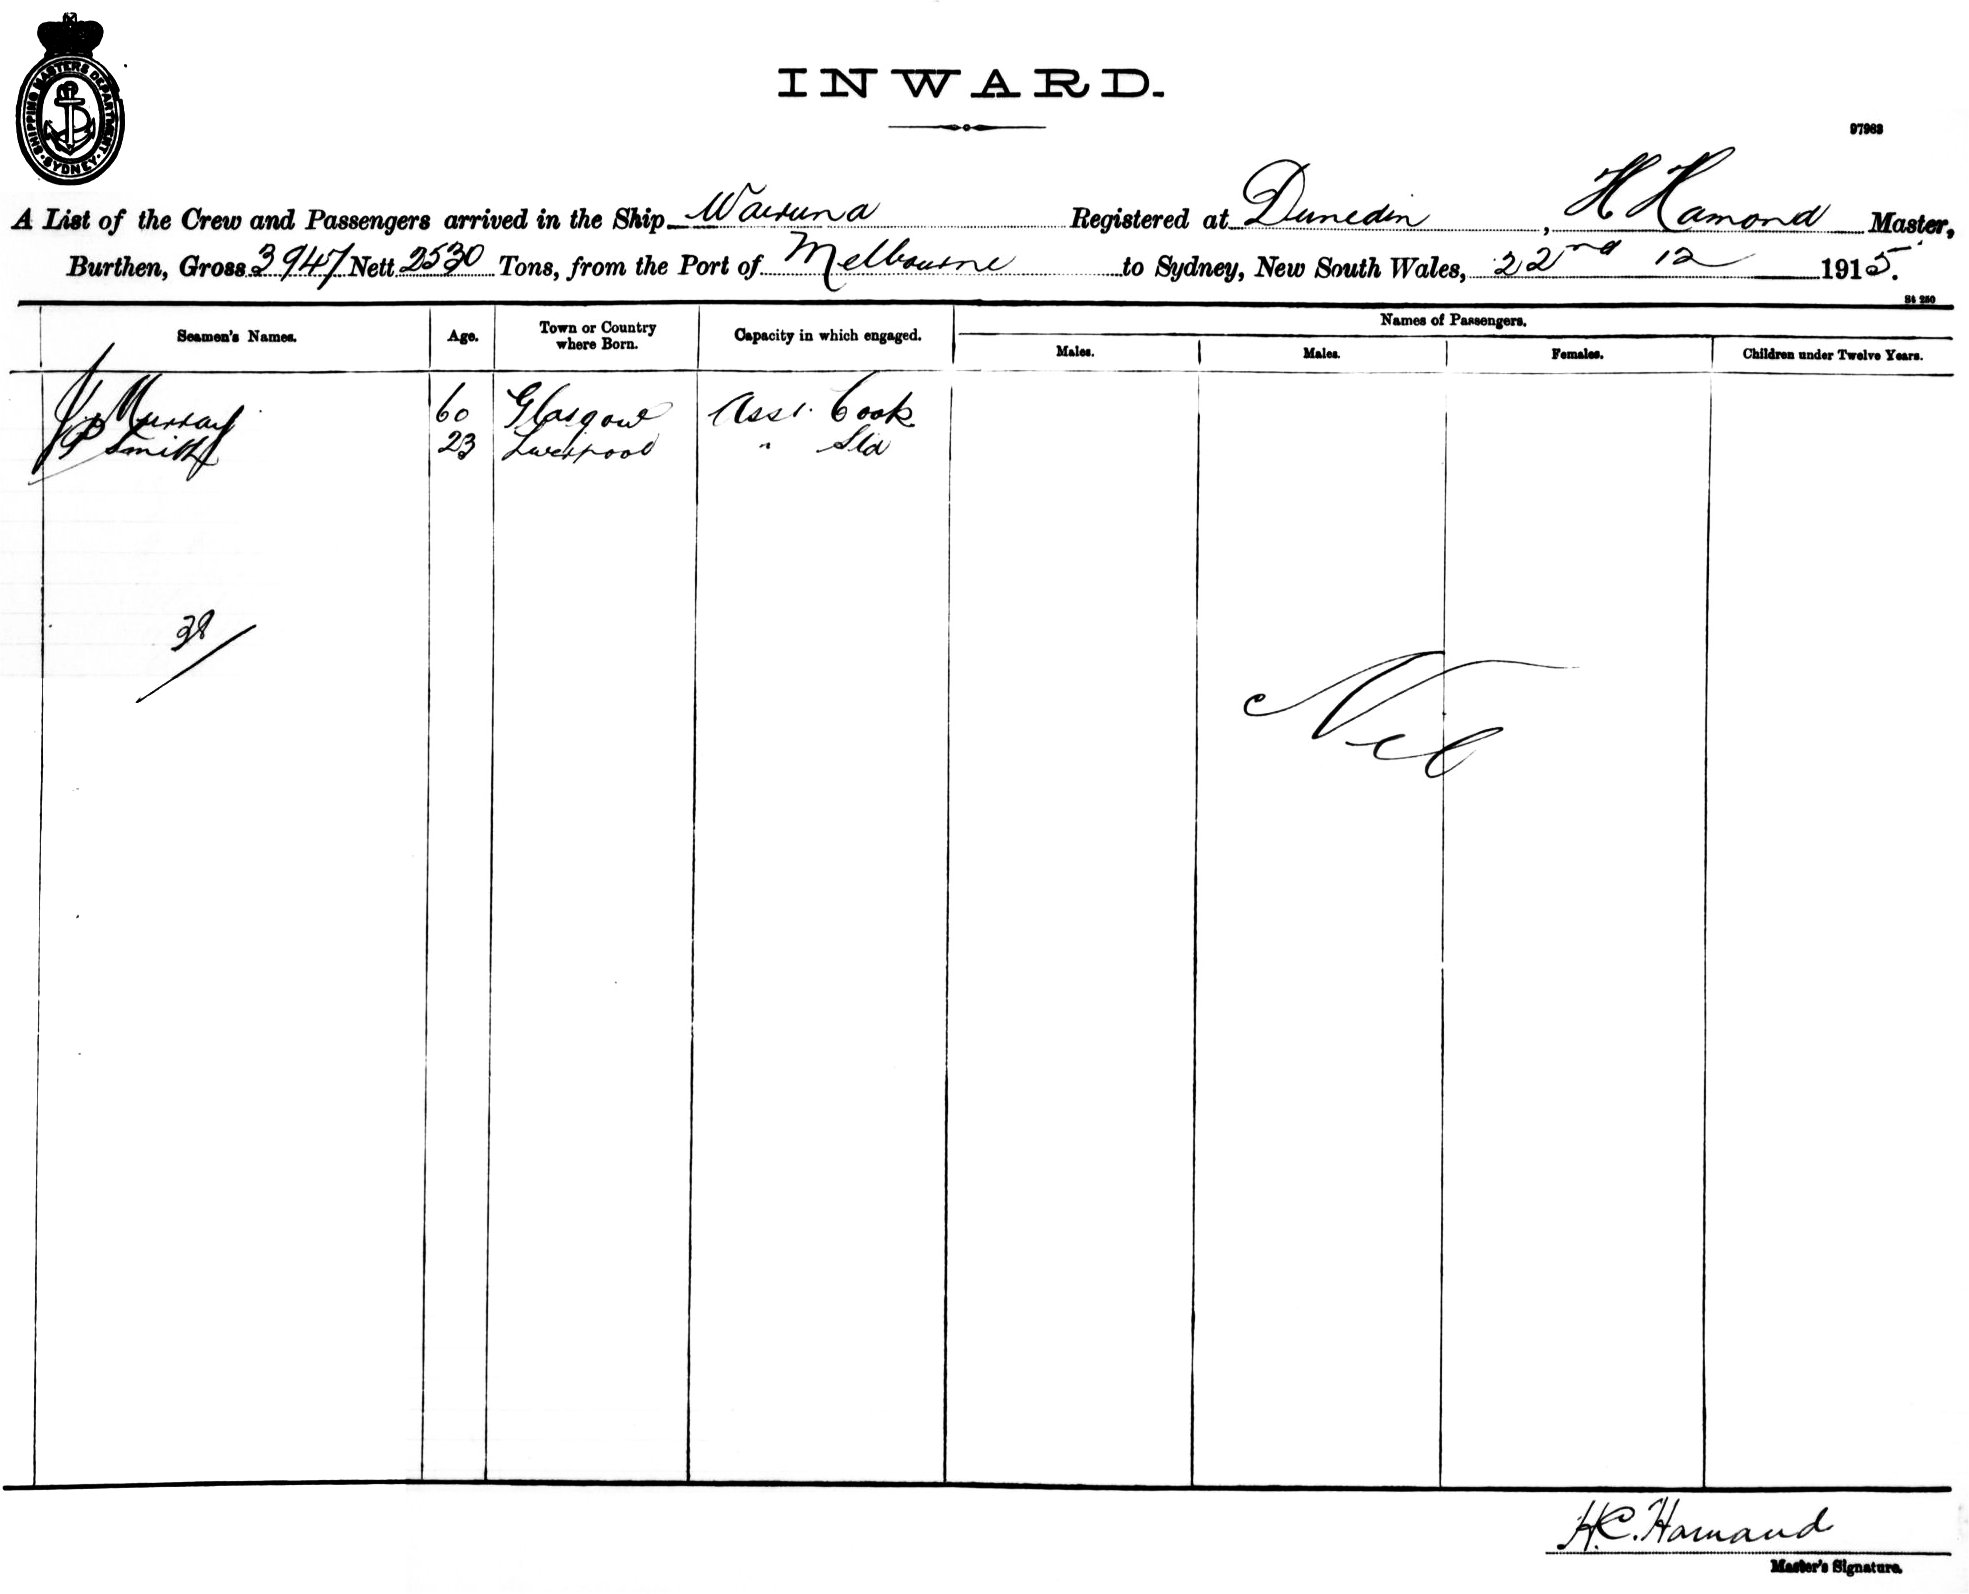 SHIPPING MASTERS DEPARTMENT
SYDNEY
INWARD.
97963
A List of the Crew and Passengers arrived in the Ship Wairuna Registered at Dunedin, H Hamond Master,
Burthen, Gross 3947 Nett 2530 Tons, from the Port of Melbourne to Sydney, New South Wales, 22nd 12 1915.
St 250
Seamen's Names. Age. Town or Country where Born. Capacity in which engaged. Names of Passengers.
Males. Males. Females. Children under Twelve Years.
J Murray 60 Glasgow Asst. Cook
P Smith 23 Liverpool " Std
38
Nil
H.C. Hamand
Master's Signature.